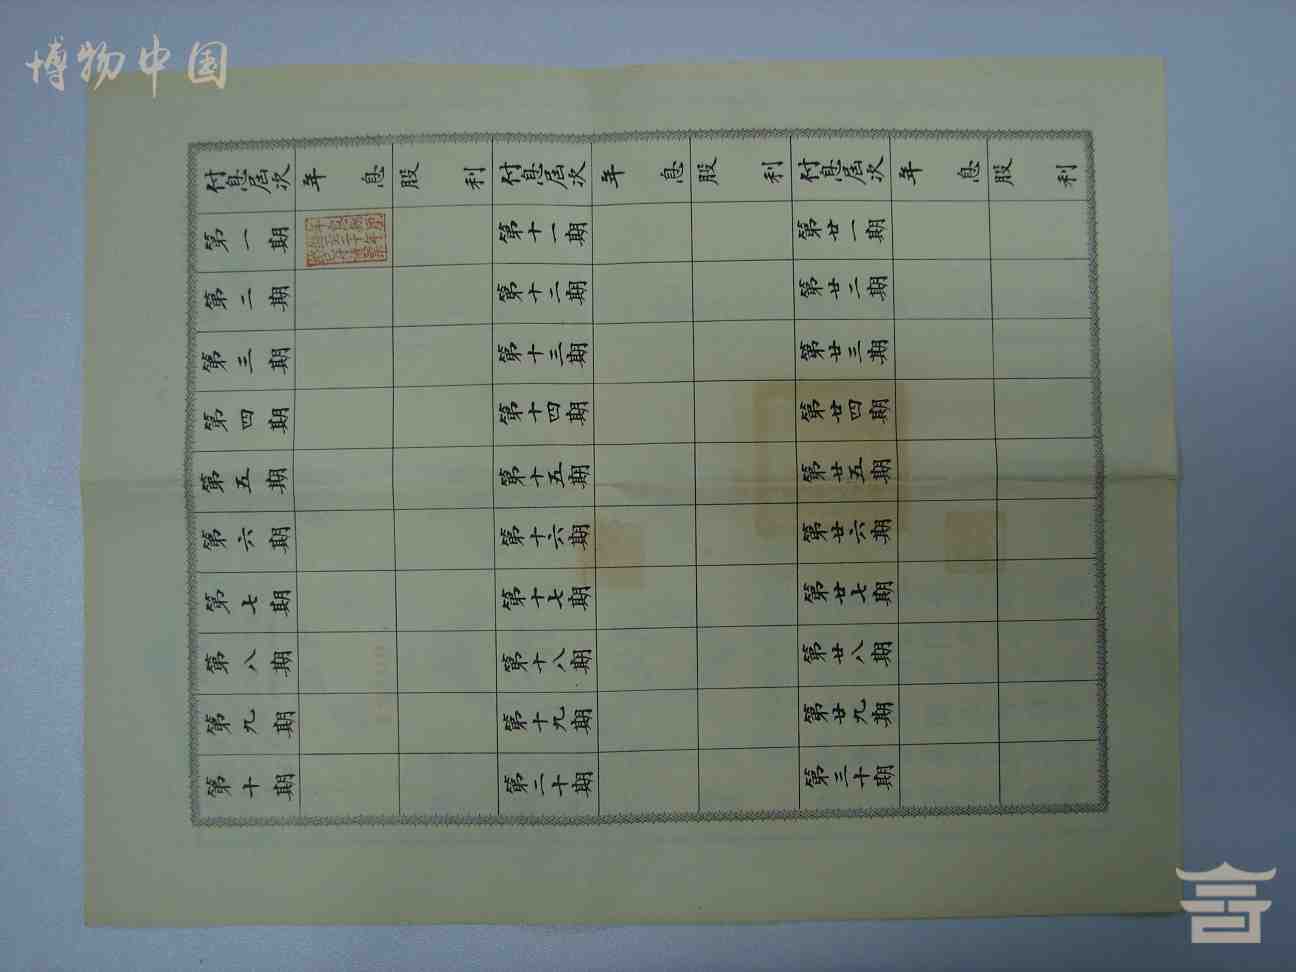 博物中国
付息屆次 年息 股利 付息屆次 年息 股利 付息屆次 年息 股利
第一期 第十一期 第廿一期
第二期 第十二期 第廿二期
第三期 第十三期 第廿三期
第四期 第十四期 第廿四期
第五期 第十五期 第廿五期
第六期 第十六期 第廿六期
第七期 第十七期 第廿七期
第八期 第十八期 第廿八期
第九期 第十九期 第廿九期
第十期 第二十期 第三十期